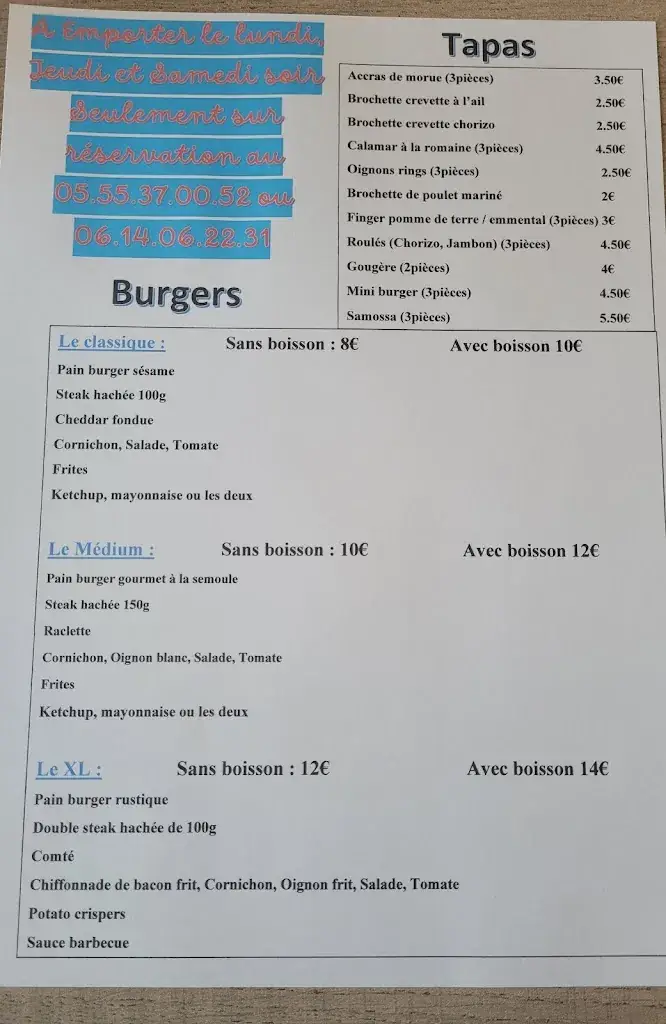 A Emporter le lundi,
Jeudi et Samedi soir
Seulement sur
réservation au
05.55.37.00.52 ou
06.14.06.22.31
Tapas
Accras de morue (3pièces) 3.50€
Brochette crevette à l'ail 2.50€
Brochette crevette chorizo 2.50€
Calamar à la romaine (3pièces) 4.50€
Oignons rings (3pièces) 2.50€
Brochette de poulet mariné 2€
Finger pomme de terre / emmental (3pièces) 3€
Roulés (Chorizo, Jambon) (3pièces) 4.50€
Gougère (2pièces) 4€
Mini burger (3pièces) 4.50€
Samossa (3pièces) 5.50€
Burgers
Le classique : Sans boisson : 8€ Avec boisson 10€
Pain burger sésame
Steak hachée 100g
Cheddar fondue
Cornichon, Salade, Tomate
Frites
Ketchup, mayonnaise ou les deux
Le Médium : Sans boisson : 10€ Avec boisson 12€
Pain burger gourmet à la semoule
Steak hachée 150g
Raclette
Cornichon, Oignon blanc, Salade, Tomate
Frites
Ketchup, mayonnaise ou les deux
Le XL : Sans boisson : 12€ Avec boisson 14€
Pain burger rustique
Double steak hachée de 100g
Comté
Chiffonnade de bacon frit, Cornichon, Oignon frit, Salade, Tomate
Potato crispers
Sauce barbecue